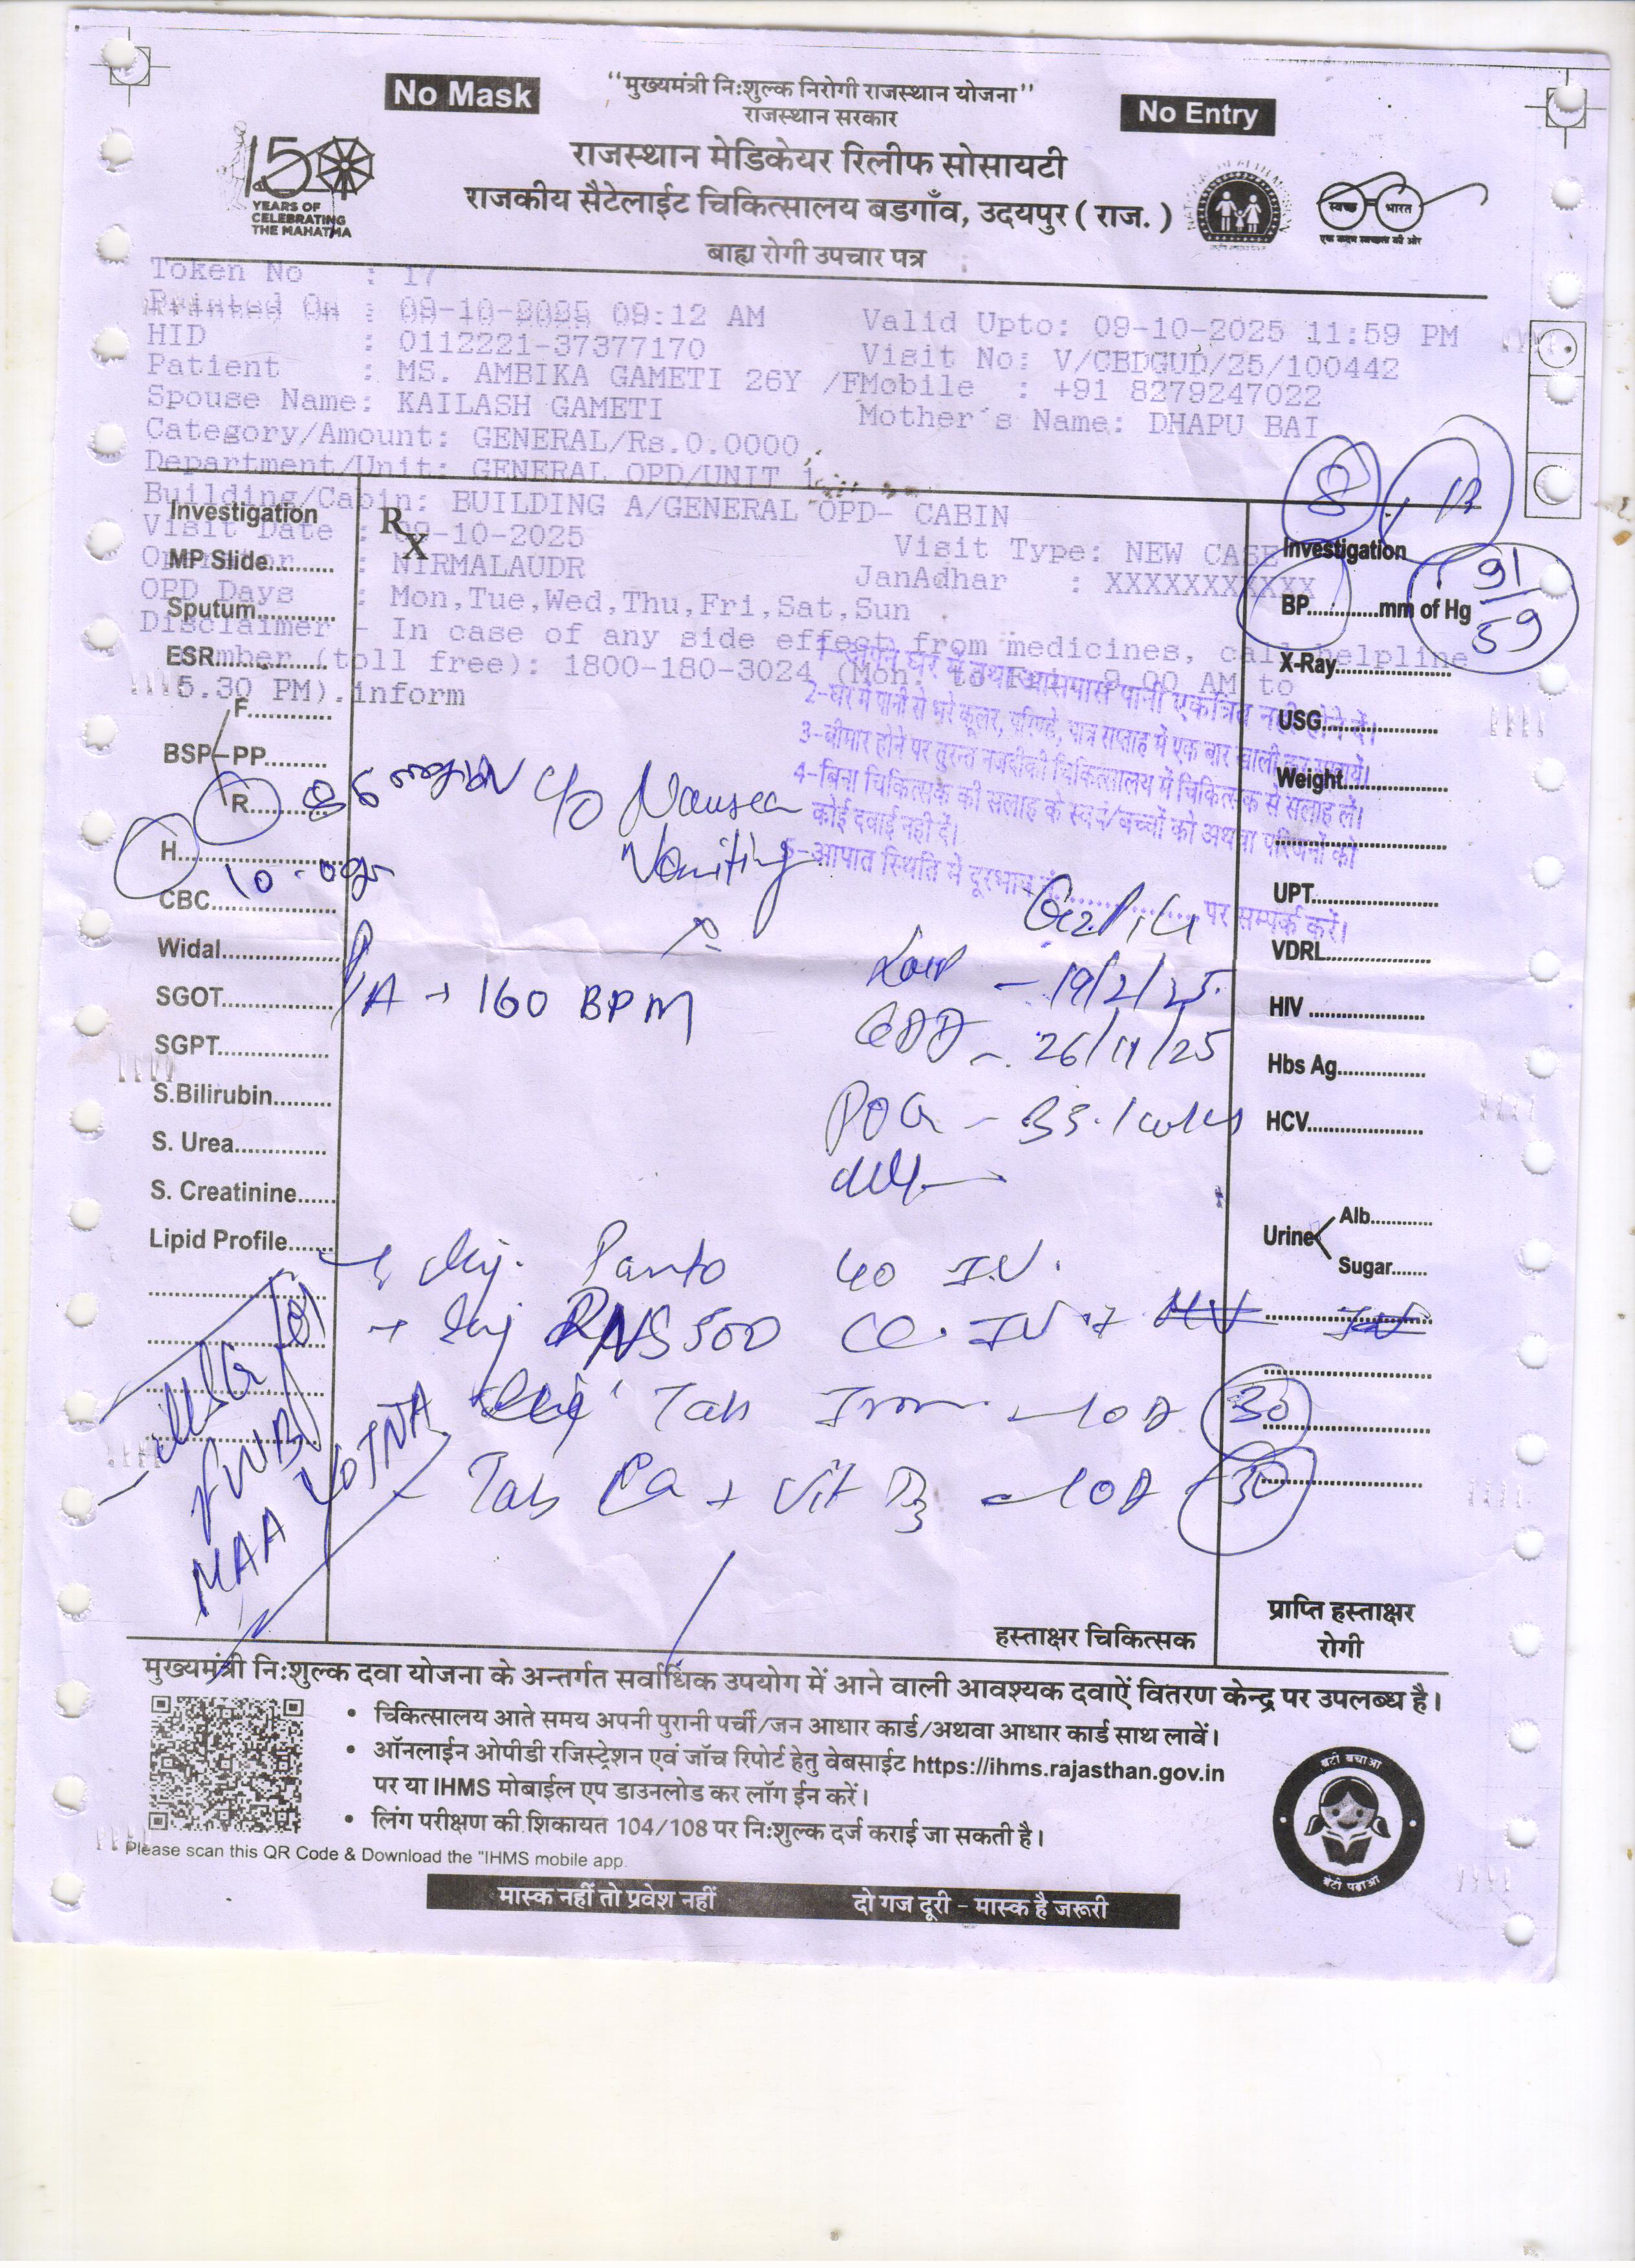 No Mask
"मुख्यमंत्री निःशुल्क निरोगी राजस्थान योजना"
राजस्थान सरकार
No Entry
150
YEARS OF
CELEBRATING
THE MAHATMA
राजस्थान मेडिकेयर रिलीफ सोसायटी
राजकीय सैटेलाईट चिकित्सालय बडगाँव, उदयपुर ( राज. )
बाह्य रोगी उपचार पत्र
स्वच्छ भारत
एक कदम स्वच्छता की ओर
Token No : 17
Printed On : 09-10-2025 09:12 AM Valid Upto: 09-10-2025 11:59 PM
HID : 0112221-37377170 Visit No: V/CBDGUD/25/100442
Patient : MS. AMBIKA GAMETI 26Y /F Mobile : +91 8279247022
Spouse Name: KAILASH GAMETI Mother's Name: DHAPU BAI
Category/Amount: GENERAL/Rs.0.0000
Department/Unit: GENERAL OPD/UNIT 1
Building/Cabin: BUILDING A/GENERAL OPD- CABIN
Visit Date : 09-10-2025 Visit Type: NEW CASE
: NIRMALAUDR JanAdhar : XXXXXXXXXXX
OPD Days : Mon,Tue,Wed,Thu,Fri,Sat,Sun
Disclaimer - In case of any side effect from medicines, call helpline
number (toll free): 1800-180-3024 (Mon. to Fri. 9.00 AM to
5.30 PM).inform
Investigation
Rx
MP Slide..........
Sputum............
ESR................
BSP
F............
PP.........
R...........
H....................
10.0
CBC.................
Widal..................
SGOT.................
SGPT................
S.Bilirubin.........
S. Urea..............
S. Creatinine......
Lipid Profile.......
8
Investigation
BP.............mm of Hg
91/59
X-Ray.................
USG....................
Weight.................
UPT..................
VDRL................
HIV .................
Hbs Ag..............
HCV.................
Urine
Alb............
Sugar.......
2-घर में पानी से भरे कूलर, परिण्डे, पात्र सप्ताह में एक बार खाली कर सुखायें।
3-बीमार होने पर तुरन्त नजदीकी चिकित्सालय में चिकित्सक से सलाह लें।
4-बिना चिकित्सक की सलाह के स्वयं/बच्चों को अथवा परिजनों को
कोई दवाई नहीं दें।
5-आपात स्थिति में दूरभाष नं.................... पर सम्पर्क करें।
c/o Nausea
Vomiting
P/A → 160 BPM
LMP - 19/2/25
EDD - 26/11/25
POG - 33.1 wks
→ Inj. Panto 40 I.V.
→ Inj RNS 500 CC. IV
Tab Iron - 1OD 30
Tab Ca + Vit D3 - 1OD 30
MAA YOJNA
हस्ताक्षर चिकित्सक
प्राप्ति हस्ताक्षर
रोगी
मुख्यमंत्री निःशुल्क दवा योजना के अन्तर्गत सर्वाधिक उपयोग में आने वाली आवश्यक दवाऐं वितरण केन्द्र पर उपलब्ध है।
• चिकित्सालय आते समय अपनी पुरानी पर्ची/जन आधार कार्ड/अथवा आधार कार्ड साथ लावें।
• ऑनलाईन ओपीडी रजिस्ट्रेशन एवं जॉच रिपोर्ट हेतु वेबसाईट https://ihms.rajasthan.gov.in
पर या IHMS मोबाईल एप डाउनलोड कर लॉग ईन करें।
• लिंग परीक्षण की शिकायत 104/108 पर निःशुल्क दर्ज कराई जा सकती है।
Please scan this QR Code & Download the "IHMS mobile app.
बेटी बचाओ
बेटी पढ़ाओ
मास्क नहीं तो प्रवेश नहीं दो गज दूरी – मास्क है जरूरी